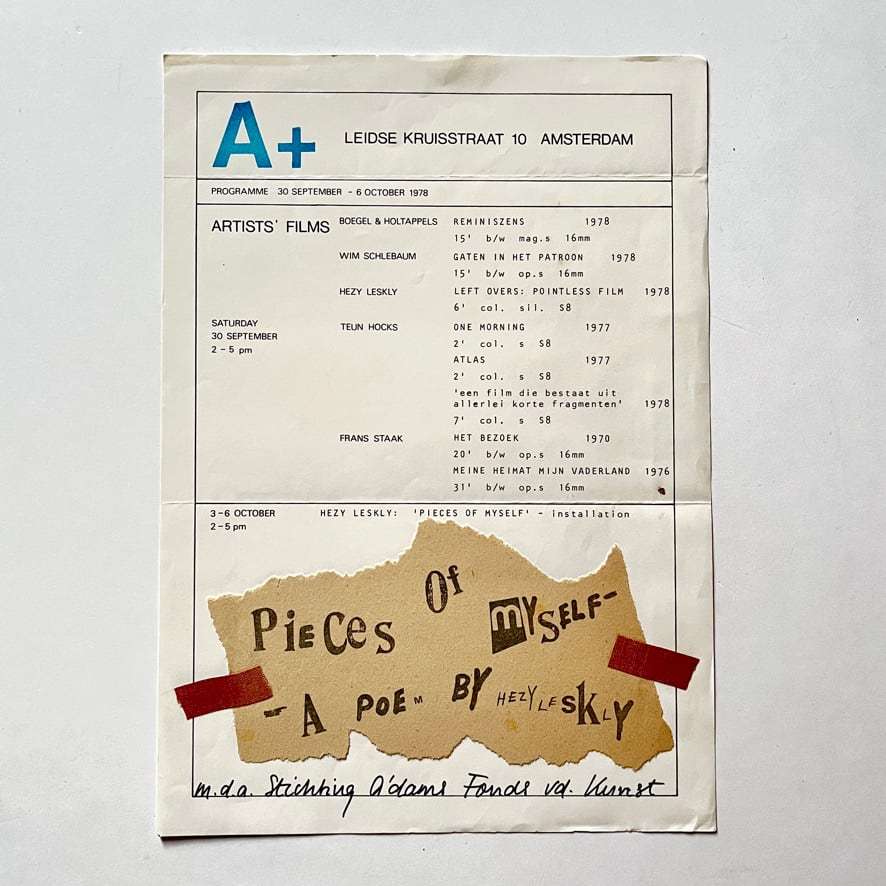 A+ LEIDSE KRUISSTRAAT 10 AMSTERDAM
PROGRAMME 30 SEPTEMBER - 6 OCTOBER 1978
ARTISTS' FILMS
SATURDAY
30 SEPTEMBER
2 - 5 pm
BOEGEL & HOLTAPPELS REMINISZENS 1978
15' b/w mag.s 16mm
WIM SCHLEBAUM GATEN IN HET PATROON 1978
15' b/w op.s 16mm
HEZY LESKLY LEFT OVERS: POINTLESS FILM 1978
6' col. sil. S8
TEUN HOCKS ONE MORNING 1977
2' col. s S8
ATLAS 1977
2' col. s S8
'een film die bestaat uit
allerlei korte fragmenten' 1978
7' col. s S8
FRANS STAAK HET BEZOEK 1970
20' b/w op.s 16mm
MEINE HEIMAT MIJN VADERLAND 1976
31' b/w op.s 16mm
3-6 OCTOBER HEZY LESKLY: 'PIECES OF MYSELF' - installation
2-5 pm
PiECes Of mYSELF-
- A POEM BY HEZY LESkLY
m.d.a. Stichting A'dams Fonds vd. Kunst